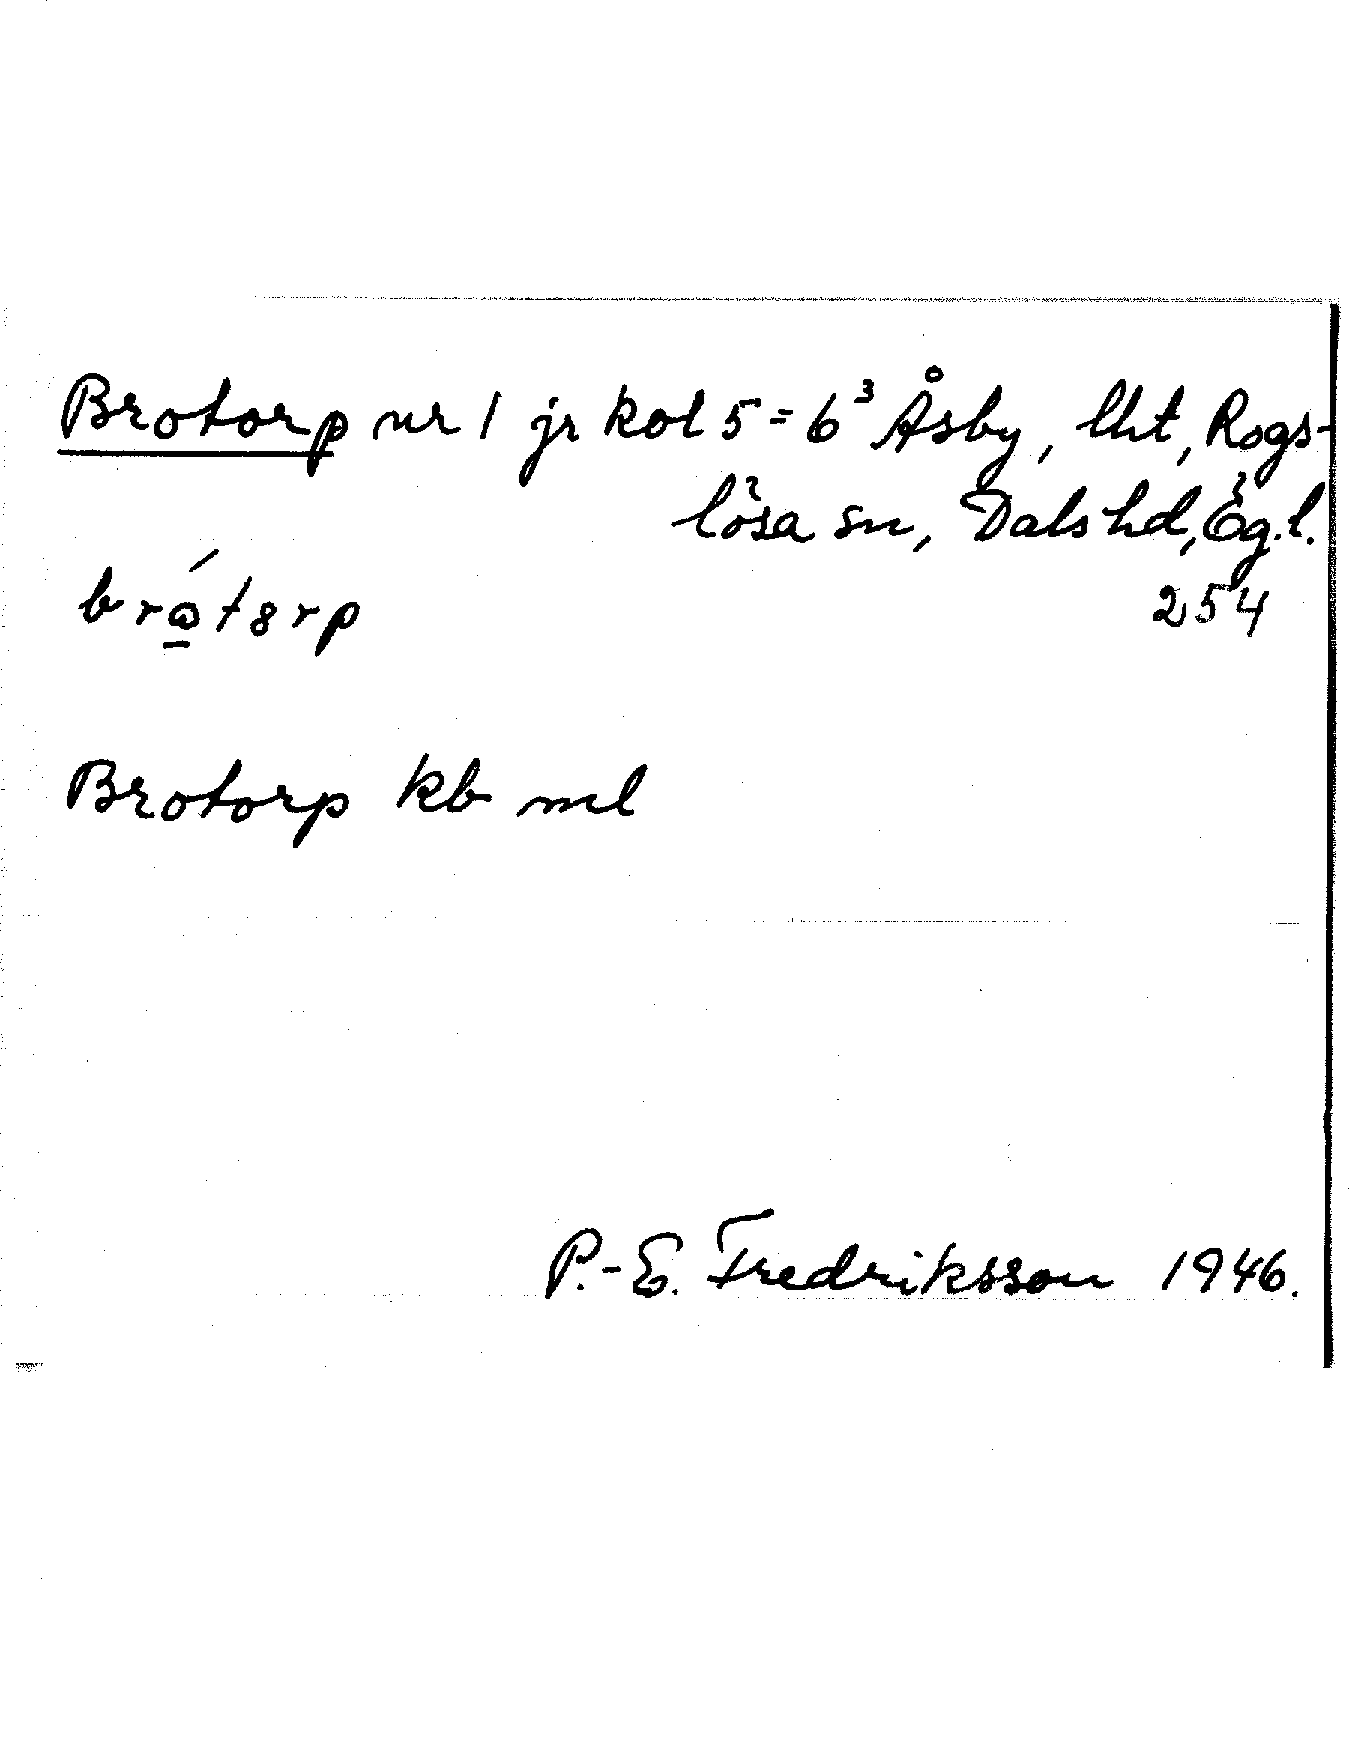 Brotorp nr 1 jr kol 5 = 6³ Åsby, lht, Rogs-
lösa sn, Dals hd, Ög.l.
254
Brotorp kb ml
P.-E. Fredriksson 1946.